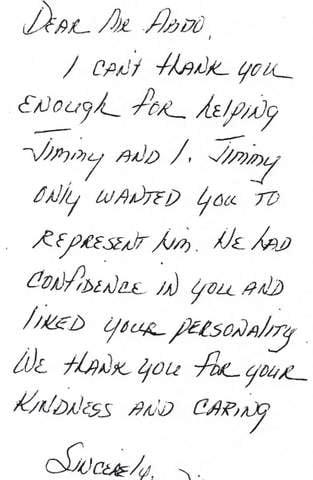 Dear Mr Abdo,
I can't thank you
enough for helping
Jimmy and I. Jimmy
only wanted you to
represent him. He had
confidence in you and
liked your personality
We thank you for your
kindness and caring
Sincerely,